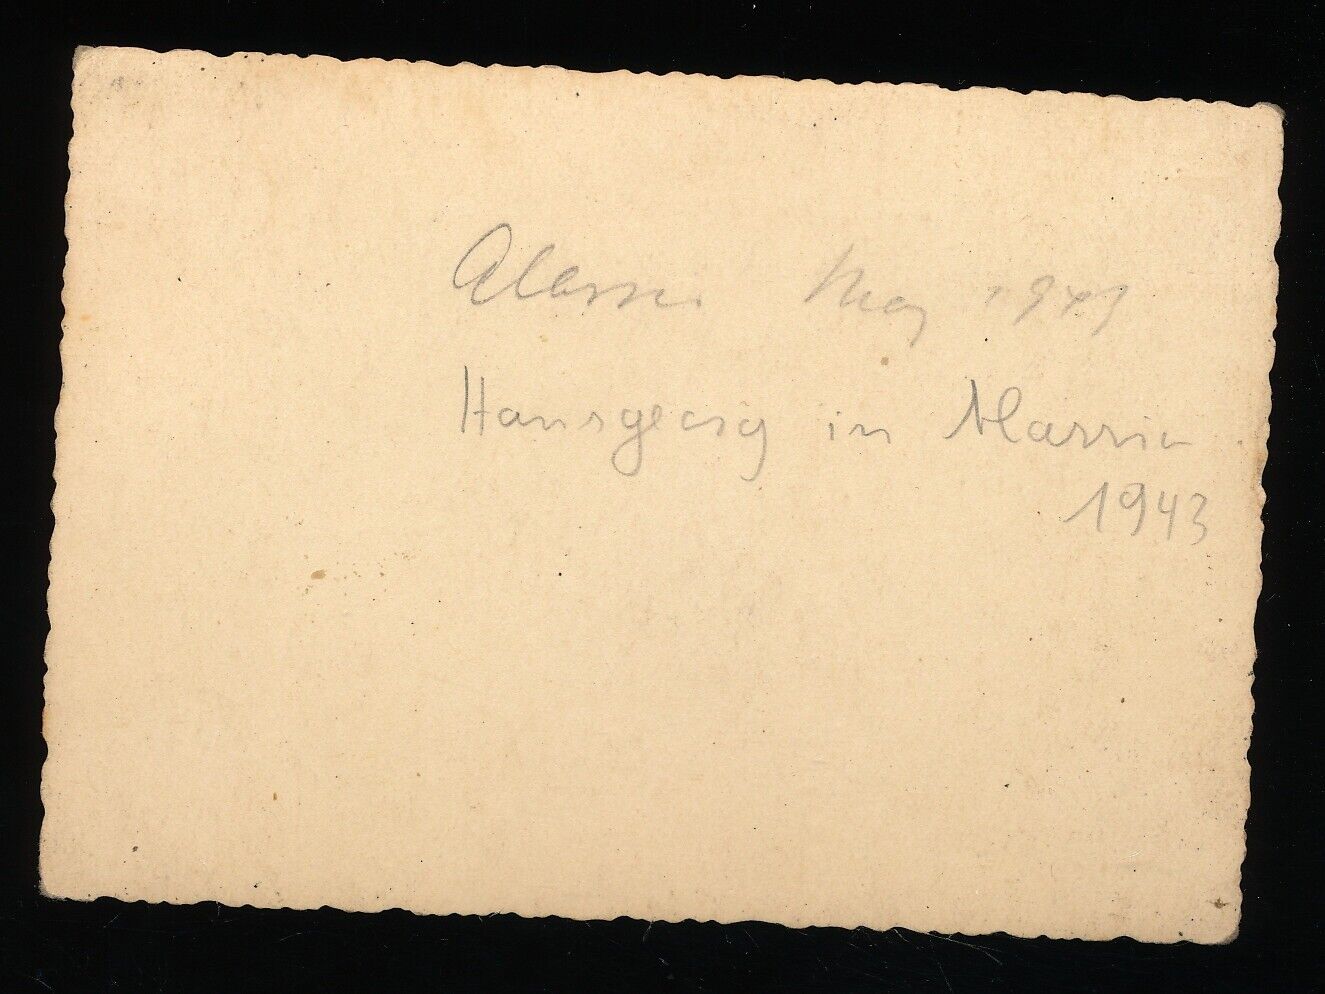 Alassio May 1943
Hansgeorg in Alassio
1943